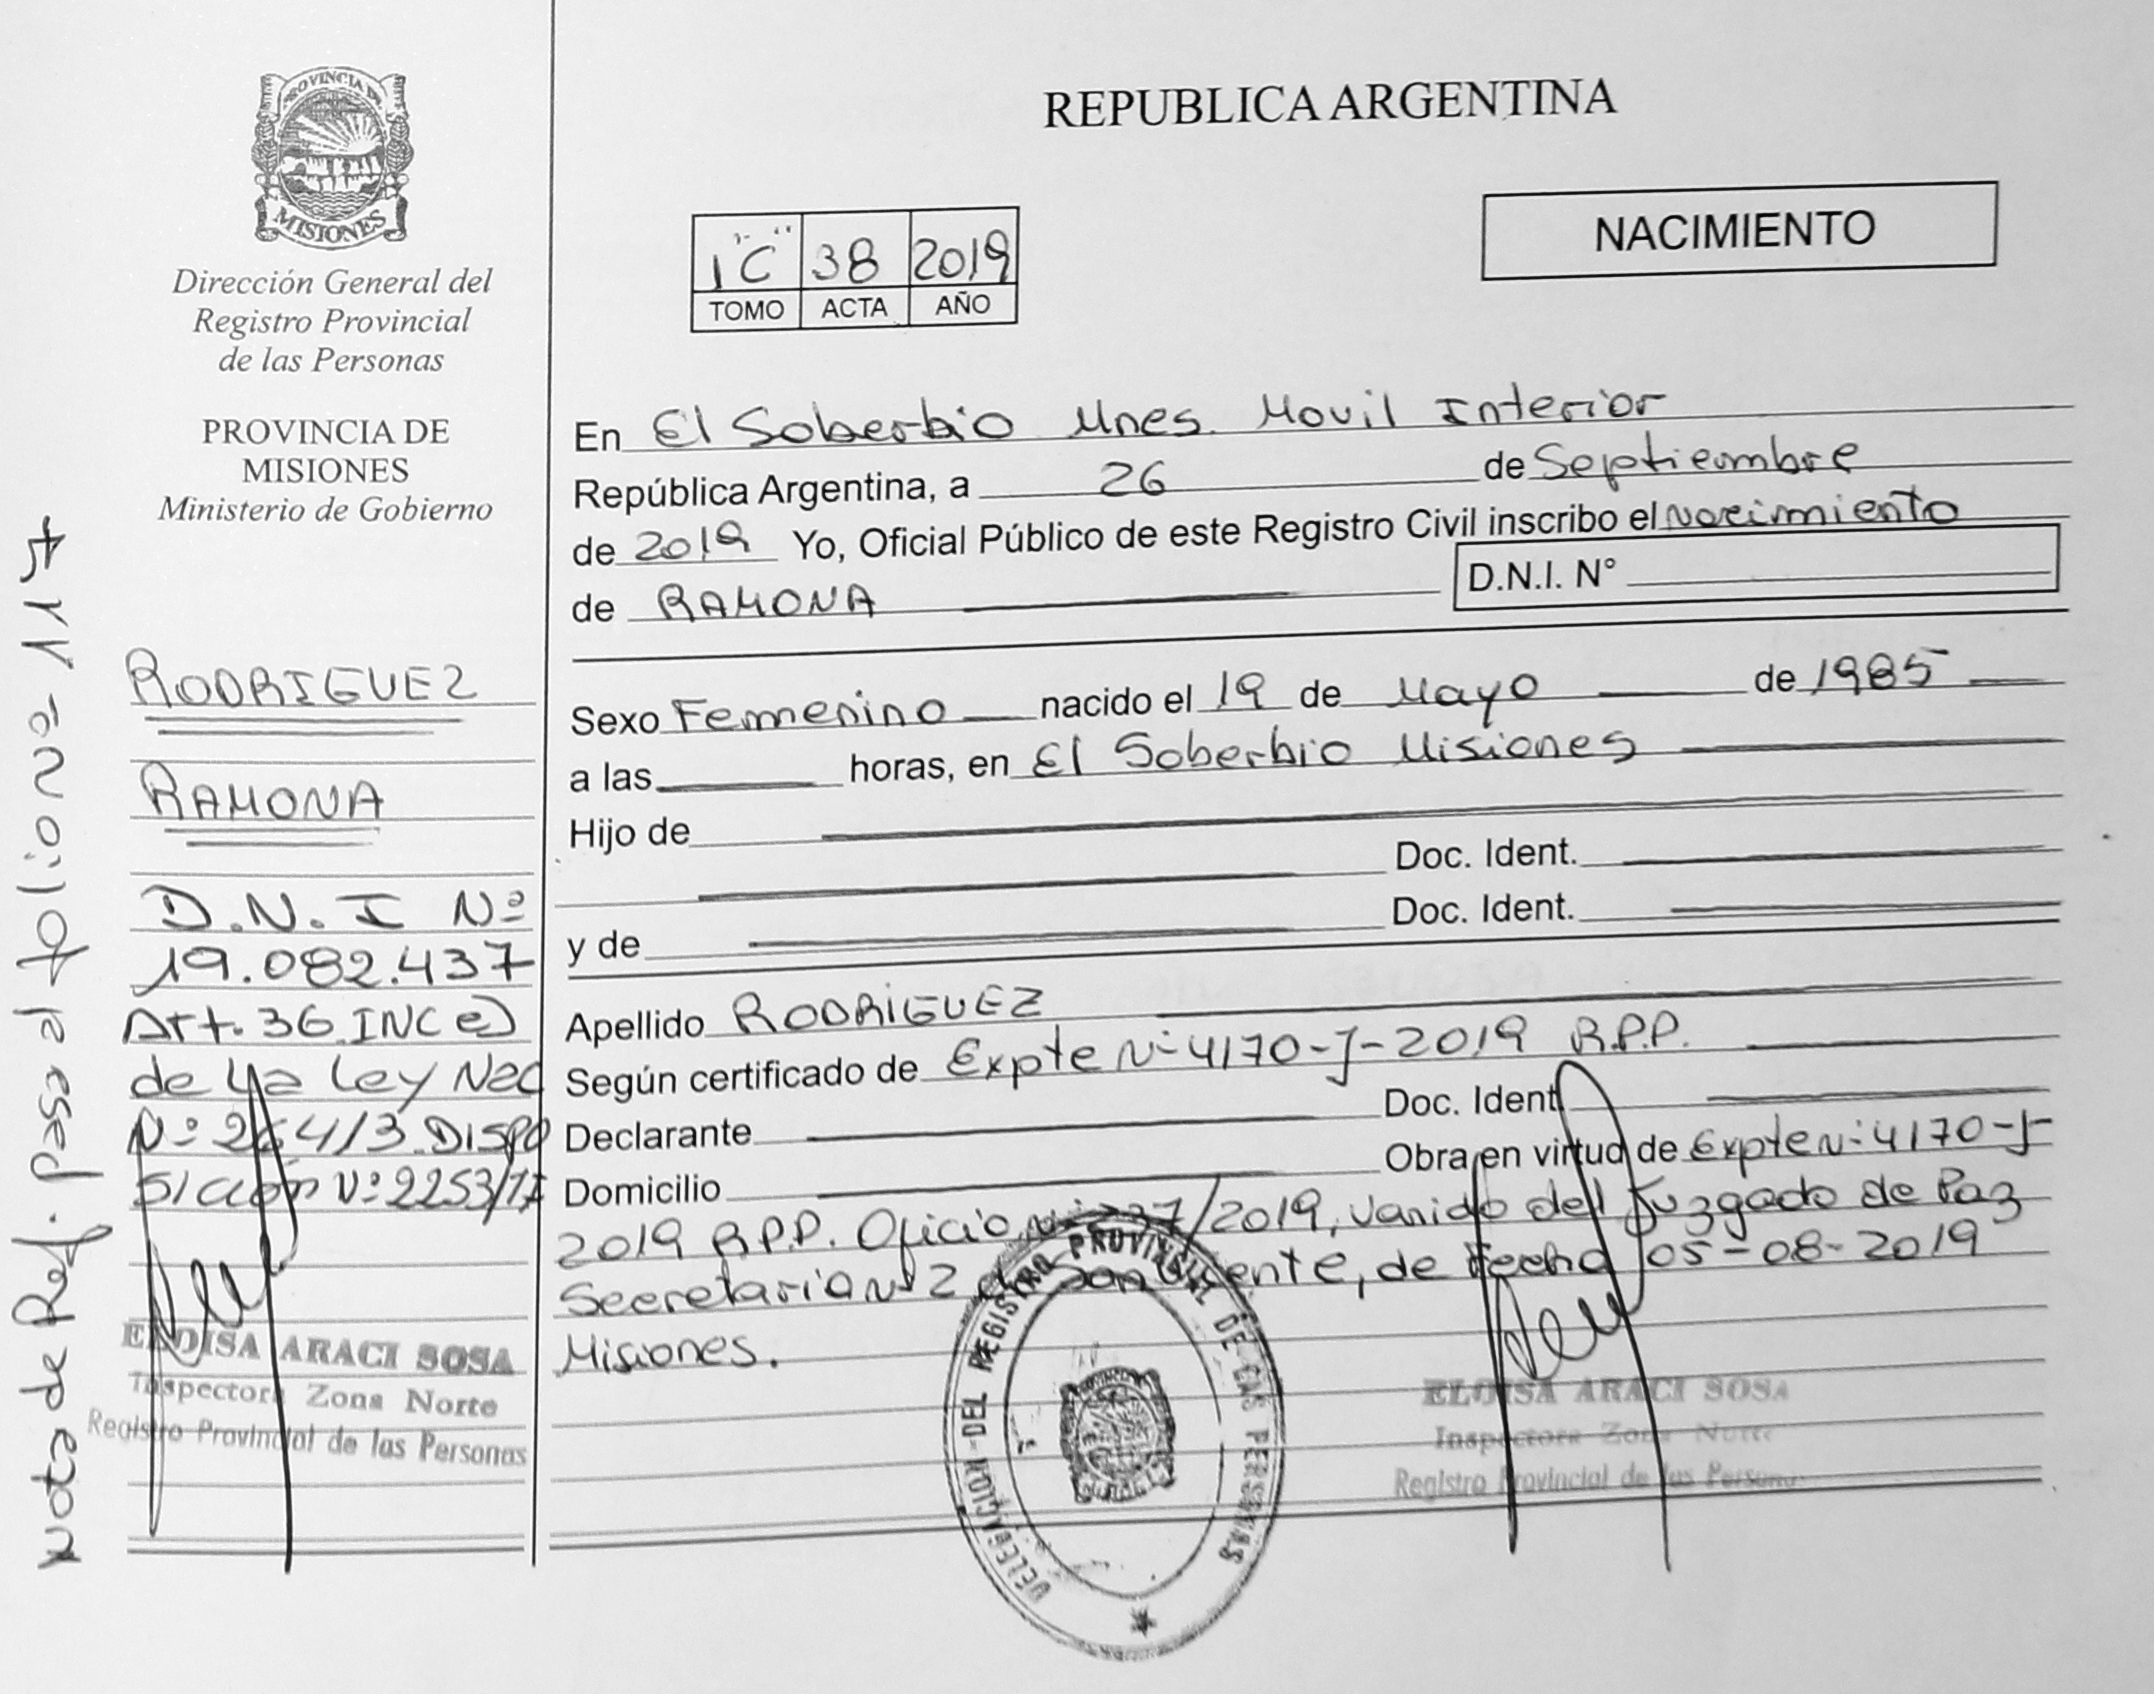 PROVINCIA DE
MISIONES
Dirección General del
Registro Provincial
de las Personas
PROVINCIA DE
MISIONES
Ministerio de Gobierno
RODRIGUEZ
RAMONA
D.N.I Nº
19.082.437
Art. 36 INC e)
de la Ley Nac
Nº 26413 DISPO
SICION Nº 2253/17
ELOISA ARACI SOSA
Inspectora Zona Norte
Registro Provincial de las Personas
Nota de Ref. pasa al folio Nº 117
REPUBLICA ARGENTINA
NACIMIENTO
1"C" 38 2019
TOMO ACTA AÑO
En El Soberbio Mnes. Movil Interior
República Argentina, a 26 de Septiembre
de 2019 Yo, Oficial Público de este Registro Civil inscribo el Nacimiento
de RAMONA D.N.I. N°
Sexo Femenino nacido el 19 de Mayo de 1985
a las horas, en El Soberbio Misiones
Hijo de
Doc. Ident.
y de Doc. Ident.
Apellido RODRIGUEZ
Según certificado de Expte Nº 4170-J-2019 R.P.P.
Declarante Doc. Ident
Domicilio Obra en virtud de Expte Nº 4170-J-
2019 R.P.P. Oficio /2019, Venido del Juzgado de Paz
Secretaria Nº 2 de San Vicente, de Fecha 05-08-2019
Misiones.
DELEGACION DEL REGISTRO PROVINCIAL DE LAS PERSONAS
ELOISA ARACI SOSA
Inspectora Zona Norte
Registro Provincial de las Persona